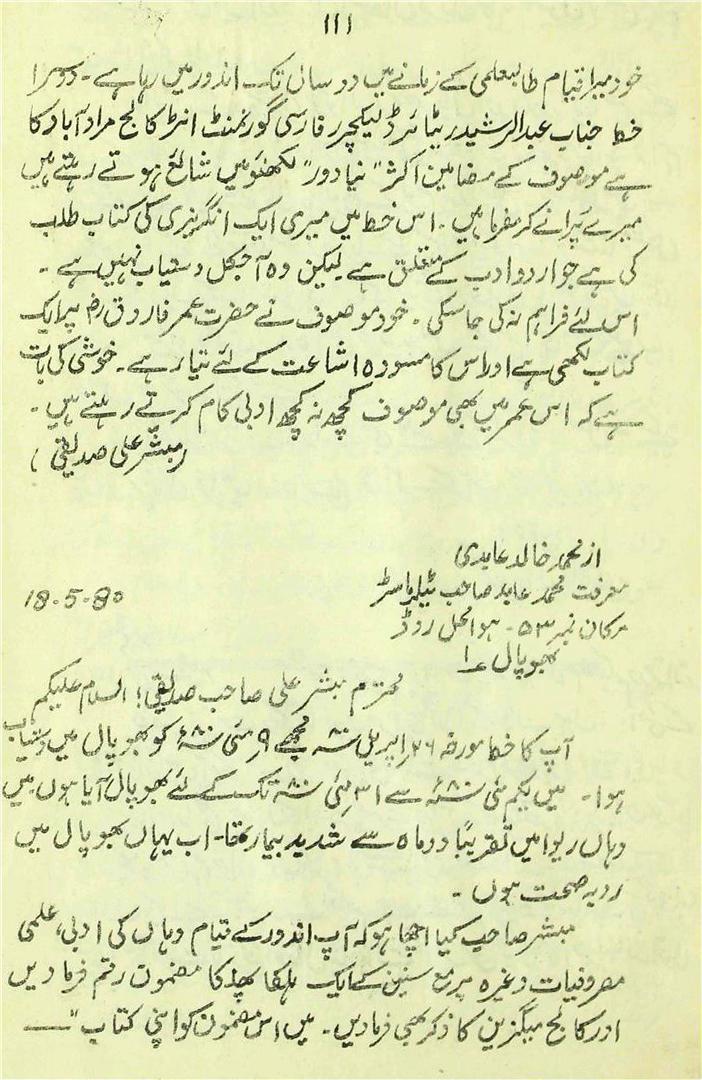 111
خود میرا قیام طالبعلمی کے زمانے میں دو سال تک اندور میں رہا ہے ۔ دوسرا
خط جناب عبدالرشید ریٹائرڈ لیکچرر فارسی گورنمنٹ انٹر کالج مرادآباد کا
ہے موصوف کے مضامین اکثر "نیا دور" لکھنؤ میں شائع ہوتے رہتے ہیں
میرے پرانے کرم فرما ہیں ۔ اس خط میں میری ایک انگریزی کی کتاب طلب
کی ہے جو اردو ادب کے متعلق ہے لیکن وہ آجکل دستیاب نہیں ہے ۔
اس لئے فراہم نہ کی جا سکی ۔ خود موصوف نے حضرت عمر فاروق رضؓ پر ایک
کتاب لکھی ہے اور اس کا مسودہ اشاعت کے لئے تیار ہے ۔ خوشی کی بات
ہے کہ اس عمر میں بھی موصوف کچھ نہ کچھ ادبی کام کرتے رہتے ہیں ۔
(مبشر علی صدیقی)
از محمد خالد عابدی
معرفت محمد عابد صاحب ٹیلر ماسٹر
18-5-80
مکان نمبر ۵۳ ۔ ہوا محل روڈ
بھوپال ۱
محترم مبشر علی صاحب صدیقی! السلام علیکم
آپ کا خط مورخہ ۲۶ اپریل ۸۰ء مجھے ۹ مئی ۸۰ء کو بھوپال میں دستیاب
ہوا ۔ میں یکم مئی ۸۰ء سے ۳۱ مئی ۸۰ء تک کے لئے بھوپال آیا ہوں ۔ میں
وہاں ریوا میں تقریباً دو ماہ سے شدید بیمار تھا ۔ اب یہاں بھوپال میں
رو بہ صحت ہوں ۔
مبشر صاحب کیا اچھا ہو کہ آپ اندور کے قیام وہاں کی ادبی، علمی
مصروفیات وغیرہ پر مع سنین کے ایک ہلکا پھلکا مضمون رقم فرما دیں
اور کالج میگزین کا ذکر بھی فرما دیں ۔ میں اس مضمون کو اپنی کتاب "—